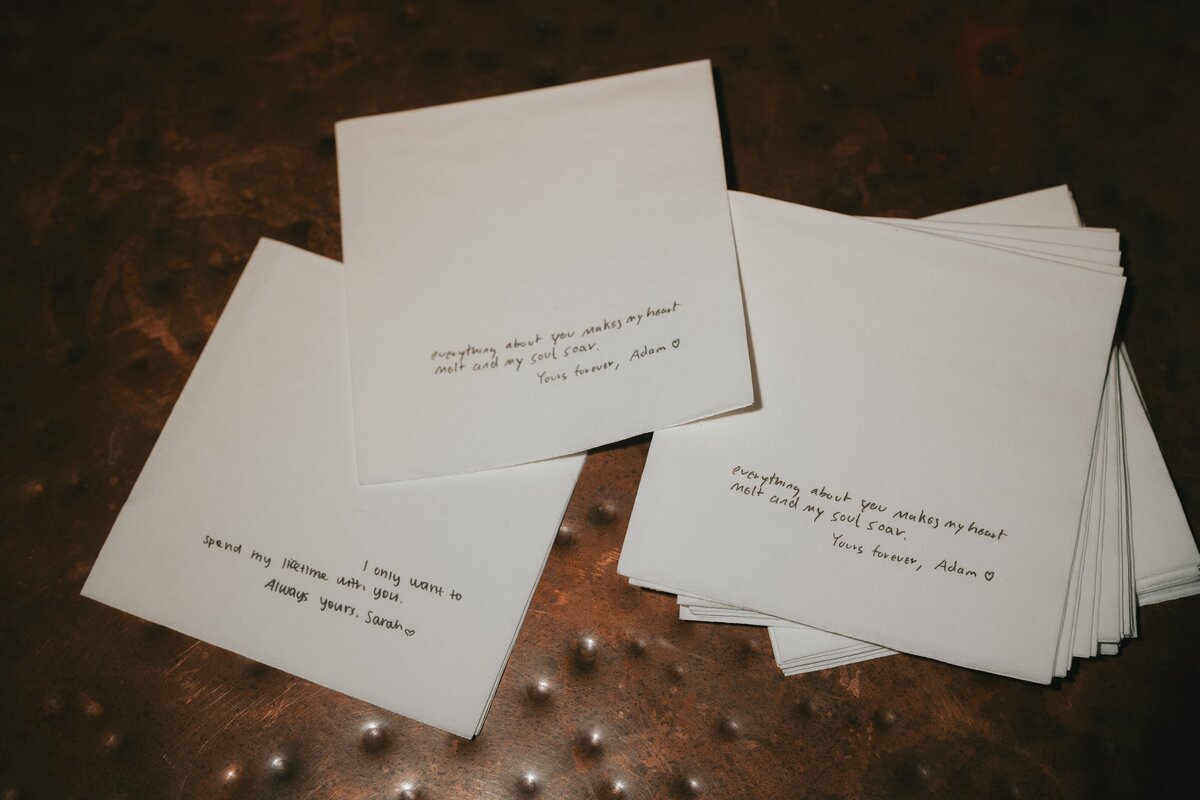 everything about you makes my heart
melt and my soul soar.
Yours forever, Adam ♡
I only want to
spend my lifetime with you.
Always yours, Sarah ♡
everything about you makes my heart
melt and my soul soar.
Yours forever, Adam ♡